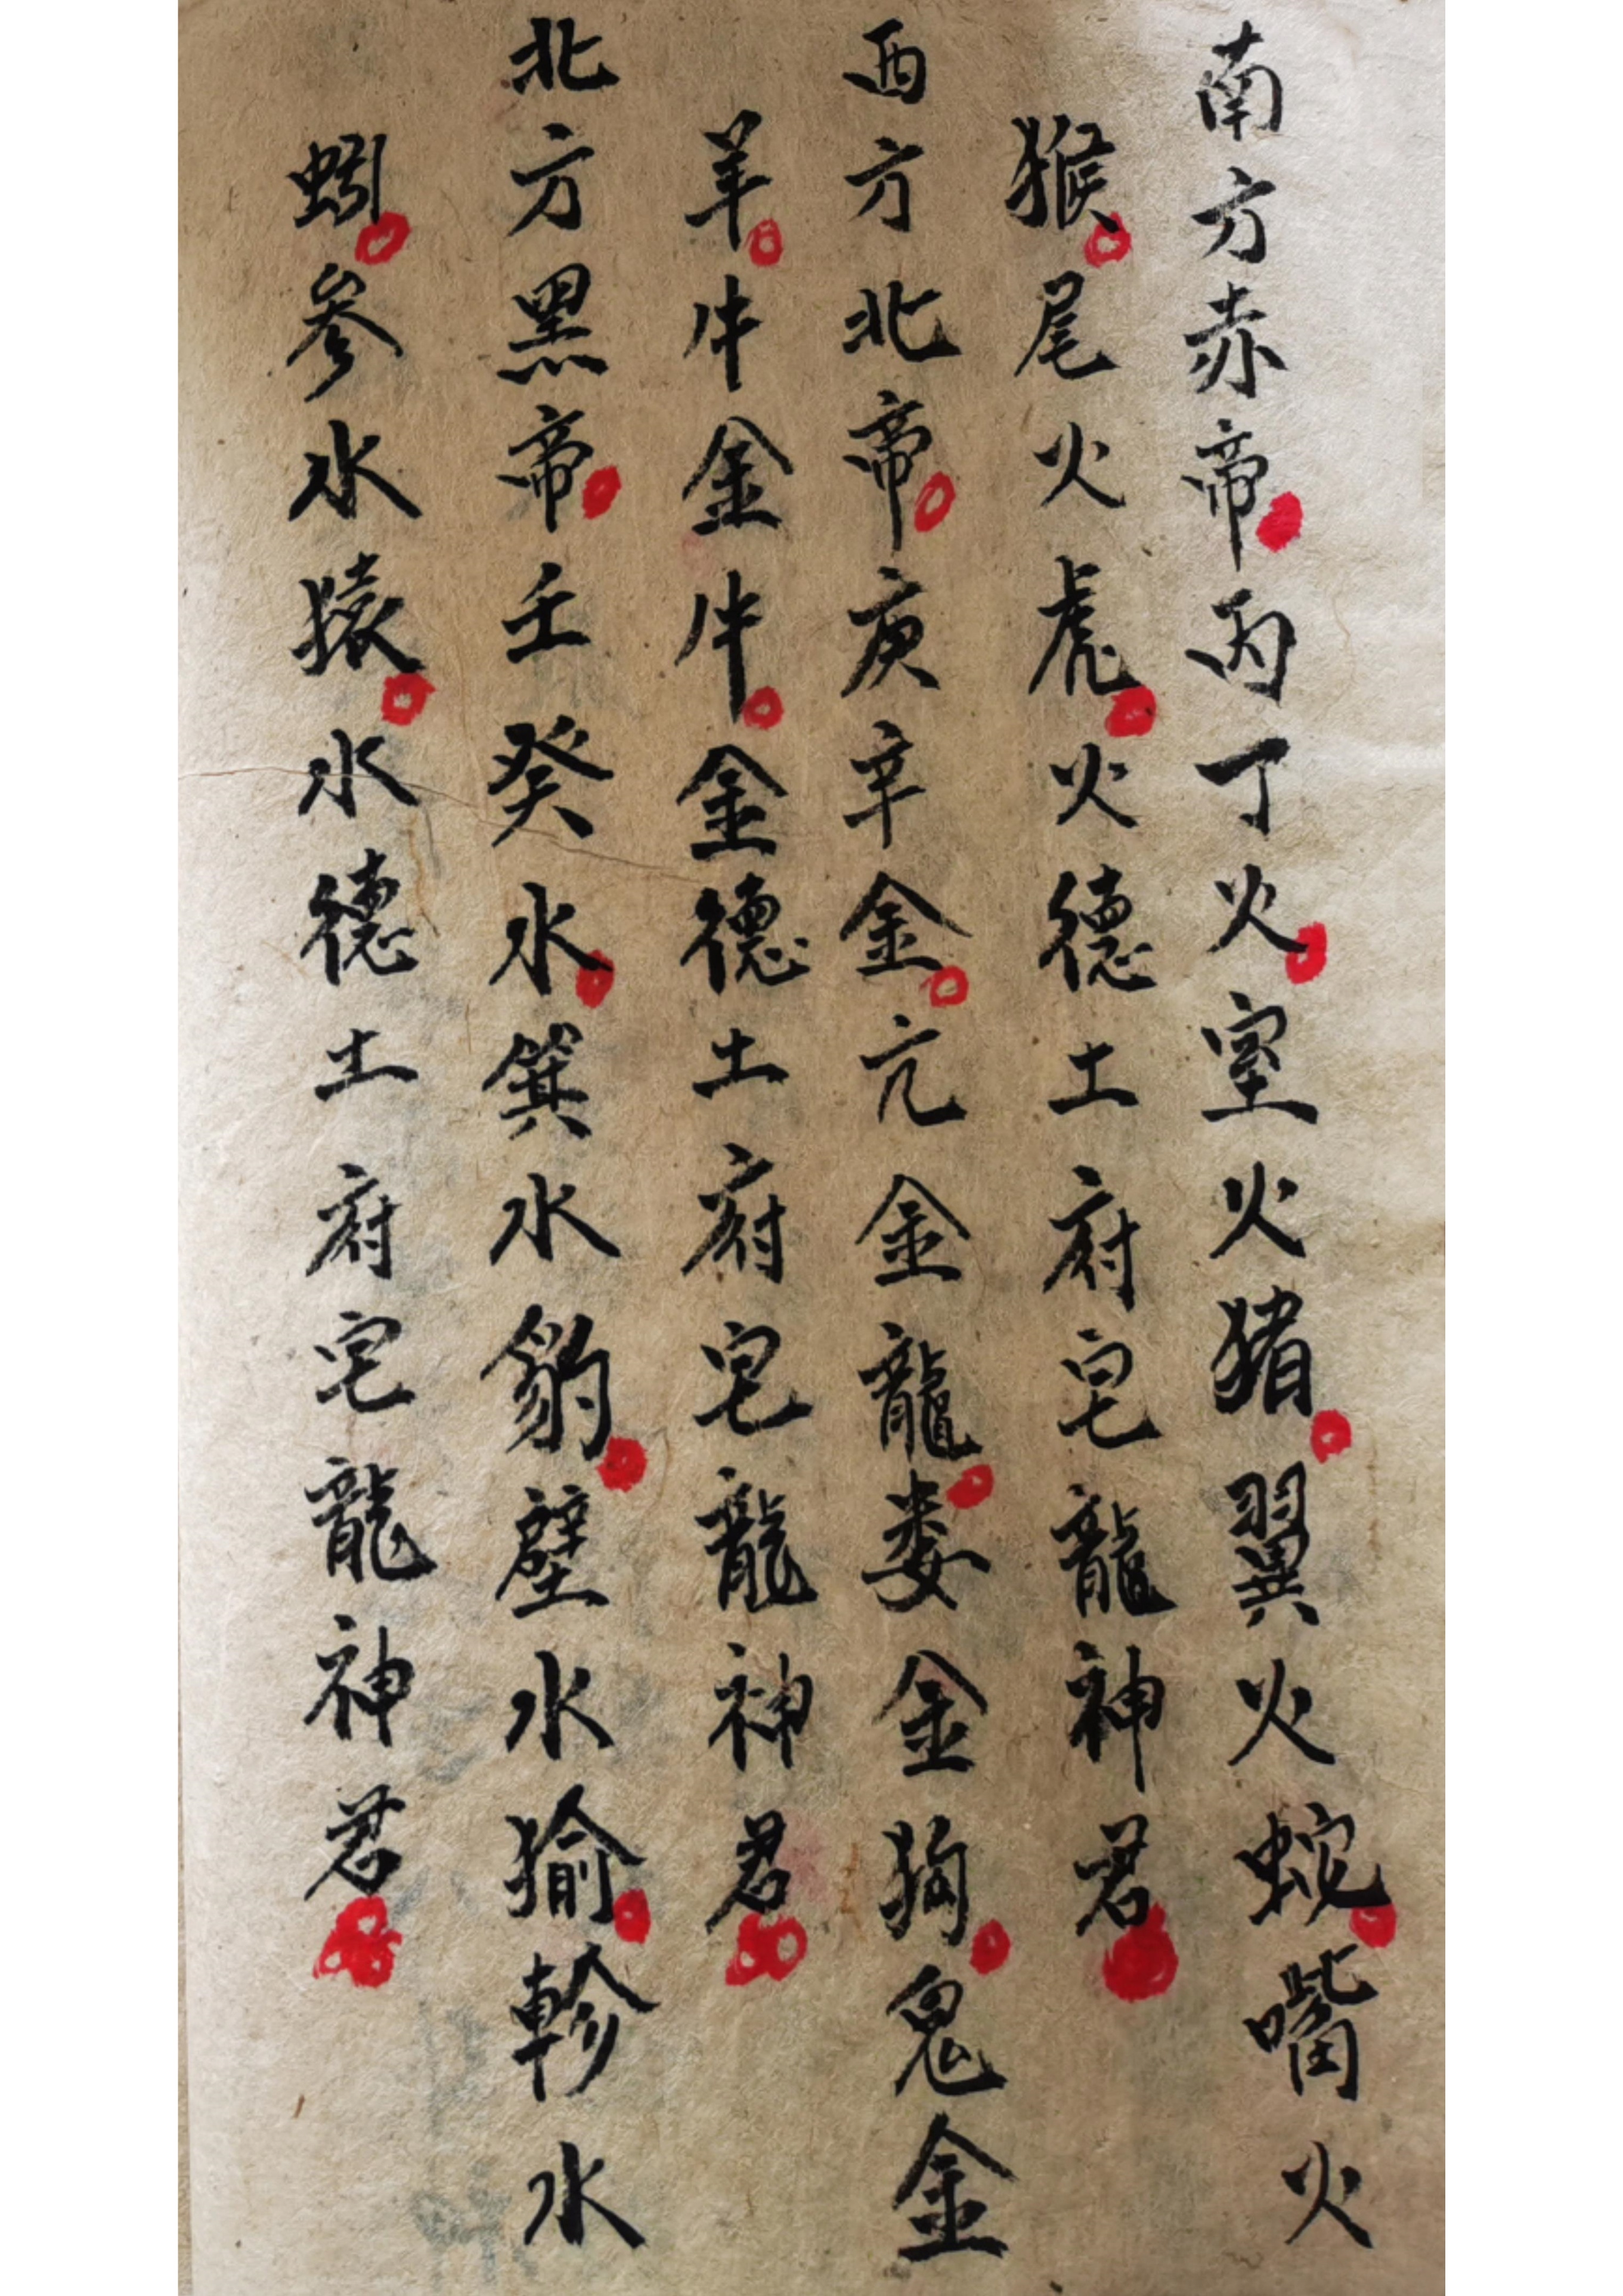 南方赤帝丙丁火室火猪翼火蛇嘴火
猴尾火虎火德土府皂龍神君
西方北帝庚辛金亢金龍娄金狗鬼金
羊牛金牛金德土府皂龍神君
北方黑帝壬癸水箕水豹壁水㺄軫水
蚓参水猿水德土府皂龍神君